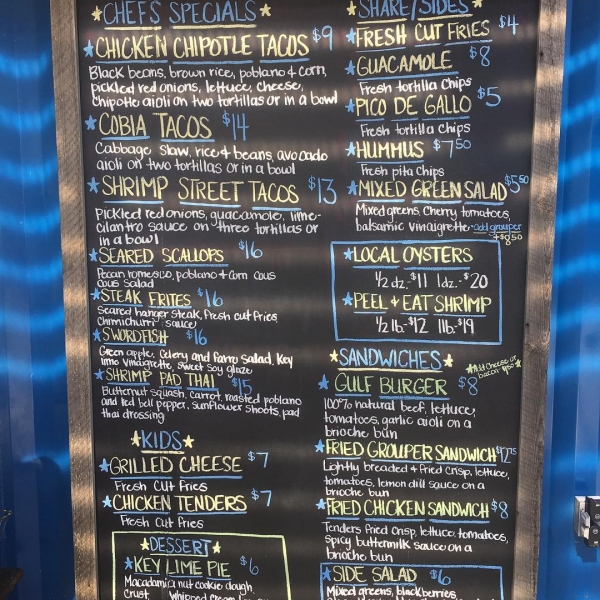 CHEFS SPECIALS
CHICKEN CHIPOTLE TACOS $9
Black beans, brown rice, poblano & corn,
pickled red onions, lettuce, cheese,
Chipotle aioli on two tortillas or in a bowl
COBIA TACOS $14
Cabbage slaw, rice & beans, avocado
aioli on two tortillas or in a bowl
SHRIMP STREET TACOS $13
Pickled red onions, guacamole, lime-
cilantro sauce on three tortillas or
in a bowl
SEARED SCALLOPS $16
Pecan romesco, poblano & corn cous
cous salad
STEAK FRITES $16
Seared hanger steak, fresh cut fries
Chimichurri sauce
SWORDFISH $16
Green apple, celery and farro salad, key
lime vinaigrette, sweet soy glaze
SHRIMP PAD THAI $15
Butternut squash, carrot, roasted poblano
and red bell pepper, sunflower shoots, pad
thai dressing
KIDS
GRILLED CHEESE $7
Fresh Cut fries
CHICKEN TENDERS $7
Fresh Cut fries
DESSERT
KEY LIME PIE $6
Macadamia nut cookie dough
Crust, Whipped Cream
SHARE/SIDES
FRESH CUT FRIES $4
GUACAMOLE $8
Fresh tortilla Chips
PICO DE GALLO $5
Fresh tortilla Chips
HUMMUS $7.50
Fresh pita Chips
MIXED GREEN SALAD $5.50
Mixed greens, Cherry tomatoes,
balsamic vinaigrette - add grouper
+$8.50
LOCAL OYSTERS
1/2 dz.-$11 1dz.-$20
PEEL & EAT SHRIMP
1/2 lb.-$12 1lb.-$19
SANDWICHES
Add Cheese or
bacon
GULF BURGER $8
100% natural beef, lettuce,
tomatoes, garlic aioli on a
brioche bun
FRIED GROUPER SANDWICH $12.75
Lightly breaded & fried crisp, lettuce,
tomatoes, lemon dill sauce on a
brioche bun
FRIED CHICKEN SANDWICH $8
Tenders fried crisp, lettuce, tomatoes,
Spicy buttermilk sauce on a
brioche bun
SIDE SALAD $6
Mixed greens, blackberries,